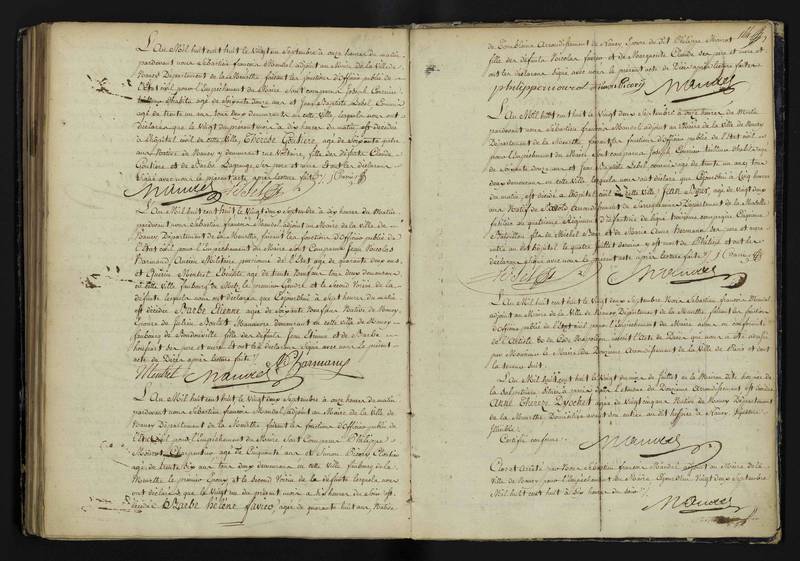 L'An Mil huit cent huit le Vingt un Septembre à onze heures du matin
pardevant nous Sébastien françois Mandel adjoint au Maire de la Ville de
Nancy Département de la Meurthe faisant les fonctions d'Officier public de
l'Etat civil pour l'empêchement du Maire Sont comparus Joseph
agé de Soixante douze ans et Jean Baptiste Lebel Commis
agé de trente un ans tous deux demeurants en cette Ville, lesquels nous ont
déclaré que le Vingt du present mois à dix heures du matin est décédée
à l'hôpital civil de cette Ville, Thérèse Coutière, agée de Soixante quatre
ans Native de Nancy y demeurant rue Voltaire, fille des défunts Claude
Coutière et de Barbe Lagrange Ses pere et mere Et ont les déclarants
Signé avec nous le présent acte après lecture faite
Mandel HLebel
L'An Mil huit cent huit le Vingt deux Septembre à dix heures du Matin
pardevant nous Sébastien françois Mandel adjoint au Maire de la Ville de
Nancy Département de la Meurthe faisant les fonctions d'Officier public de
l'Etat civil pour l'empêchement du Maire Sont Comparus Jean Nicolas
Harmand Ancien Militaire pensionné de l'Etat agé de quarante deux ans
et Quirin Mentrel Ebéniste agé de trente trois ans tous deux demeurants
en cette Ville faubourg de Metz le premier Gendre et le Second Voisin de la
défunte lesquels nous ont déclaré que Cejourd'hui à Sept heures du matin
est décédée Barbe Etienne agée de Soixante Neuf ans Native de Nancy,
Epouse de Julien Manoeuvre demeurant en cette Ville de Nancy
faubourg de fille des défunts Jean Etienne et de Barbe
Ses pere et mere Et ont les déclarants Signé avec nous le présent
acte de Décès après lecture faite
Mentrel Mandel Harmand
L'An Mil huit cent huit le Vingt deux Septembre à onze heures du matin
pardevant nous Sébastien françois Mandel adjoint au Maire de la Ville de
Nancy Département de la Meurthe faisant les fonctions d'Officier public de
l'Etat civil pour l'empêchement du Maire Sont Comparus Philippe
Mourot Charpentier agé de Cinquante ans et Simon Picoré
agé de trente six ans tous deux demeurants en cette Ville faubourg de la
Meurthe le premier Epoux et le Second Voisin de la défunte lesquels nous
ont déclaré que le Vingt un du présent mois à heures du Soir est
décédée Barbe hélène favier, agée de quarante huit ans Native
de Tomblaine Arrondissement de Nancy Epouse du dit Philippe Mourot
fille des défunts Nicolas favier et de Marguerite Claude Ses pere et mere et
ont les déclarants Signé avec nous le présent acte de Décès après lecture faite
philippe mourot Simon Picoré Mandel
L'An Mil huit cent huit le Vingt deux Septembre à onze heures du Matin
pardevant nous Sébastien françois Mandel adjoint au Maire de la Ville de Nancy
Département de la Meurthe faisant les fonctions d'officier public de l'Etat civil
pour l'empêchement du Maire Sont comparus Joseph
de Soixante douze ans et Jean Lebel commis agé de trente un ans tous
deux demeurants en cette Ville lesquels nous ont déclaré que Cejourd'hui à Cinq heures
du matin, est décédé à l'hôpital civil de cette Ville, Jean Boyer, agé de Vingt deux
ans Natif de Arrondissement de Sarreguemines Département de la Moselle
fusilier au quatrième Régiment d'Infanterie de ligne troisième compagnie Cinquième
Bataillon fils de Michel Boyer et de Marie Anne Hermann Ses pere et mere
entré au dit hôpital le quatre Juillet dernier y est mort de Et ont les
déclarants Signé avec nous le présent acte après lecture faite
HLebel Mandel
L'An Mil huit cent huit le Vingt deux Septembre Nous Sébastien françois Mandel
adjoint au Maire de la Ville de Nancy Département de la Meurthe faisant les fonctions
d'Officier public de l'Etat civil pour l'empêchement du Maire avons en conformité
de l'Article du Code Napoléon inscrit l'Acte de Décès qui nous a été adressé
par Monsieur le Maire du Douzième Arrondissement de la Ville de Paris et dont
la teneur Suit
L'An Mil huit cent huit le Vingt de Juillet en la Maison dite hospice
de la Salpêtrière Située à Paris dans l'étendue du Douzième Arrondissement est décédée
Anne Thereze agée de Vingt cinq ans Native de Nancy Département
de la Meurthe Domiciliée avant son entrée au dit hospice à Nancy,
Certifié conforme.
Mandel
Clos et Arrêté par Nous Sébastien françois Mandel, adjoint au Maire de la
Ville de Nancy pour l'empêchement du Maire, Cejourd'hui Vingt deux Septembre
Mil huit cent huit à Six heures du Soir
Mandel